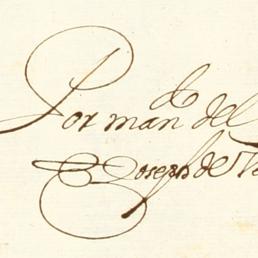 Por man^do del
Joseph de